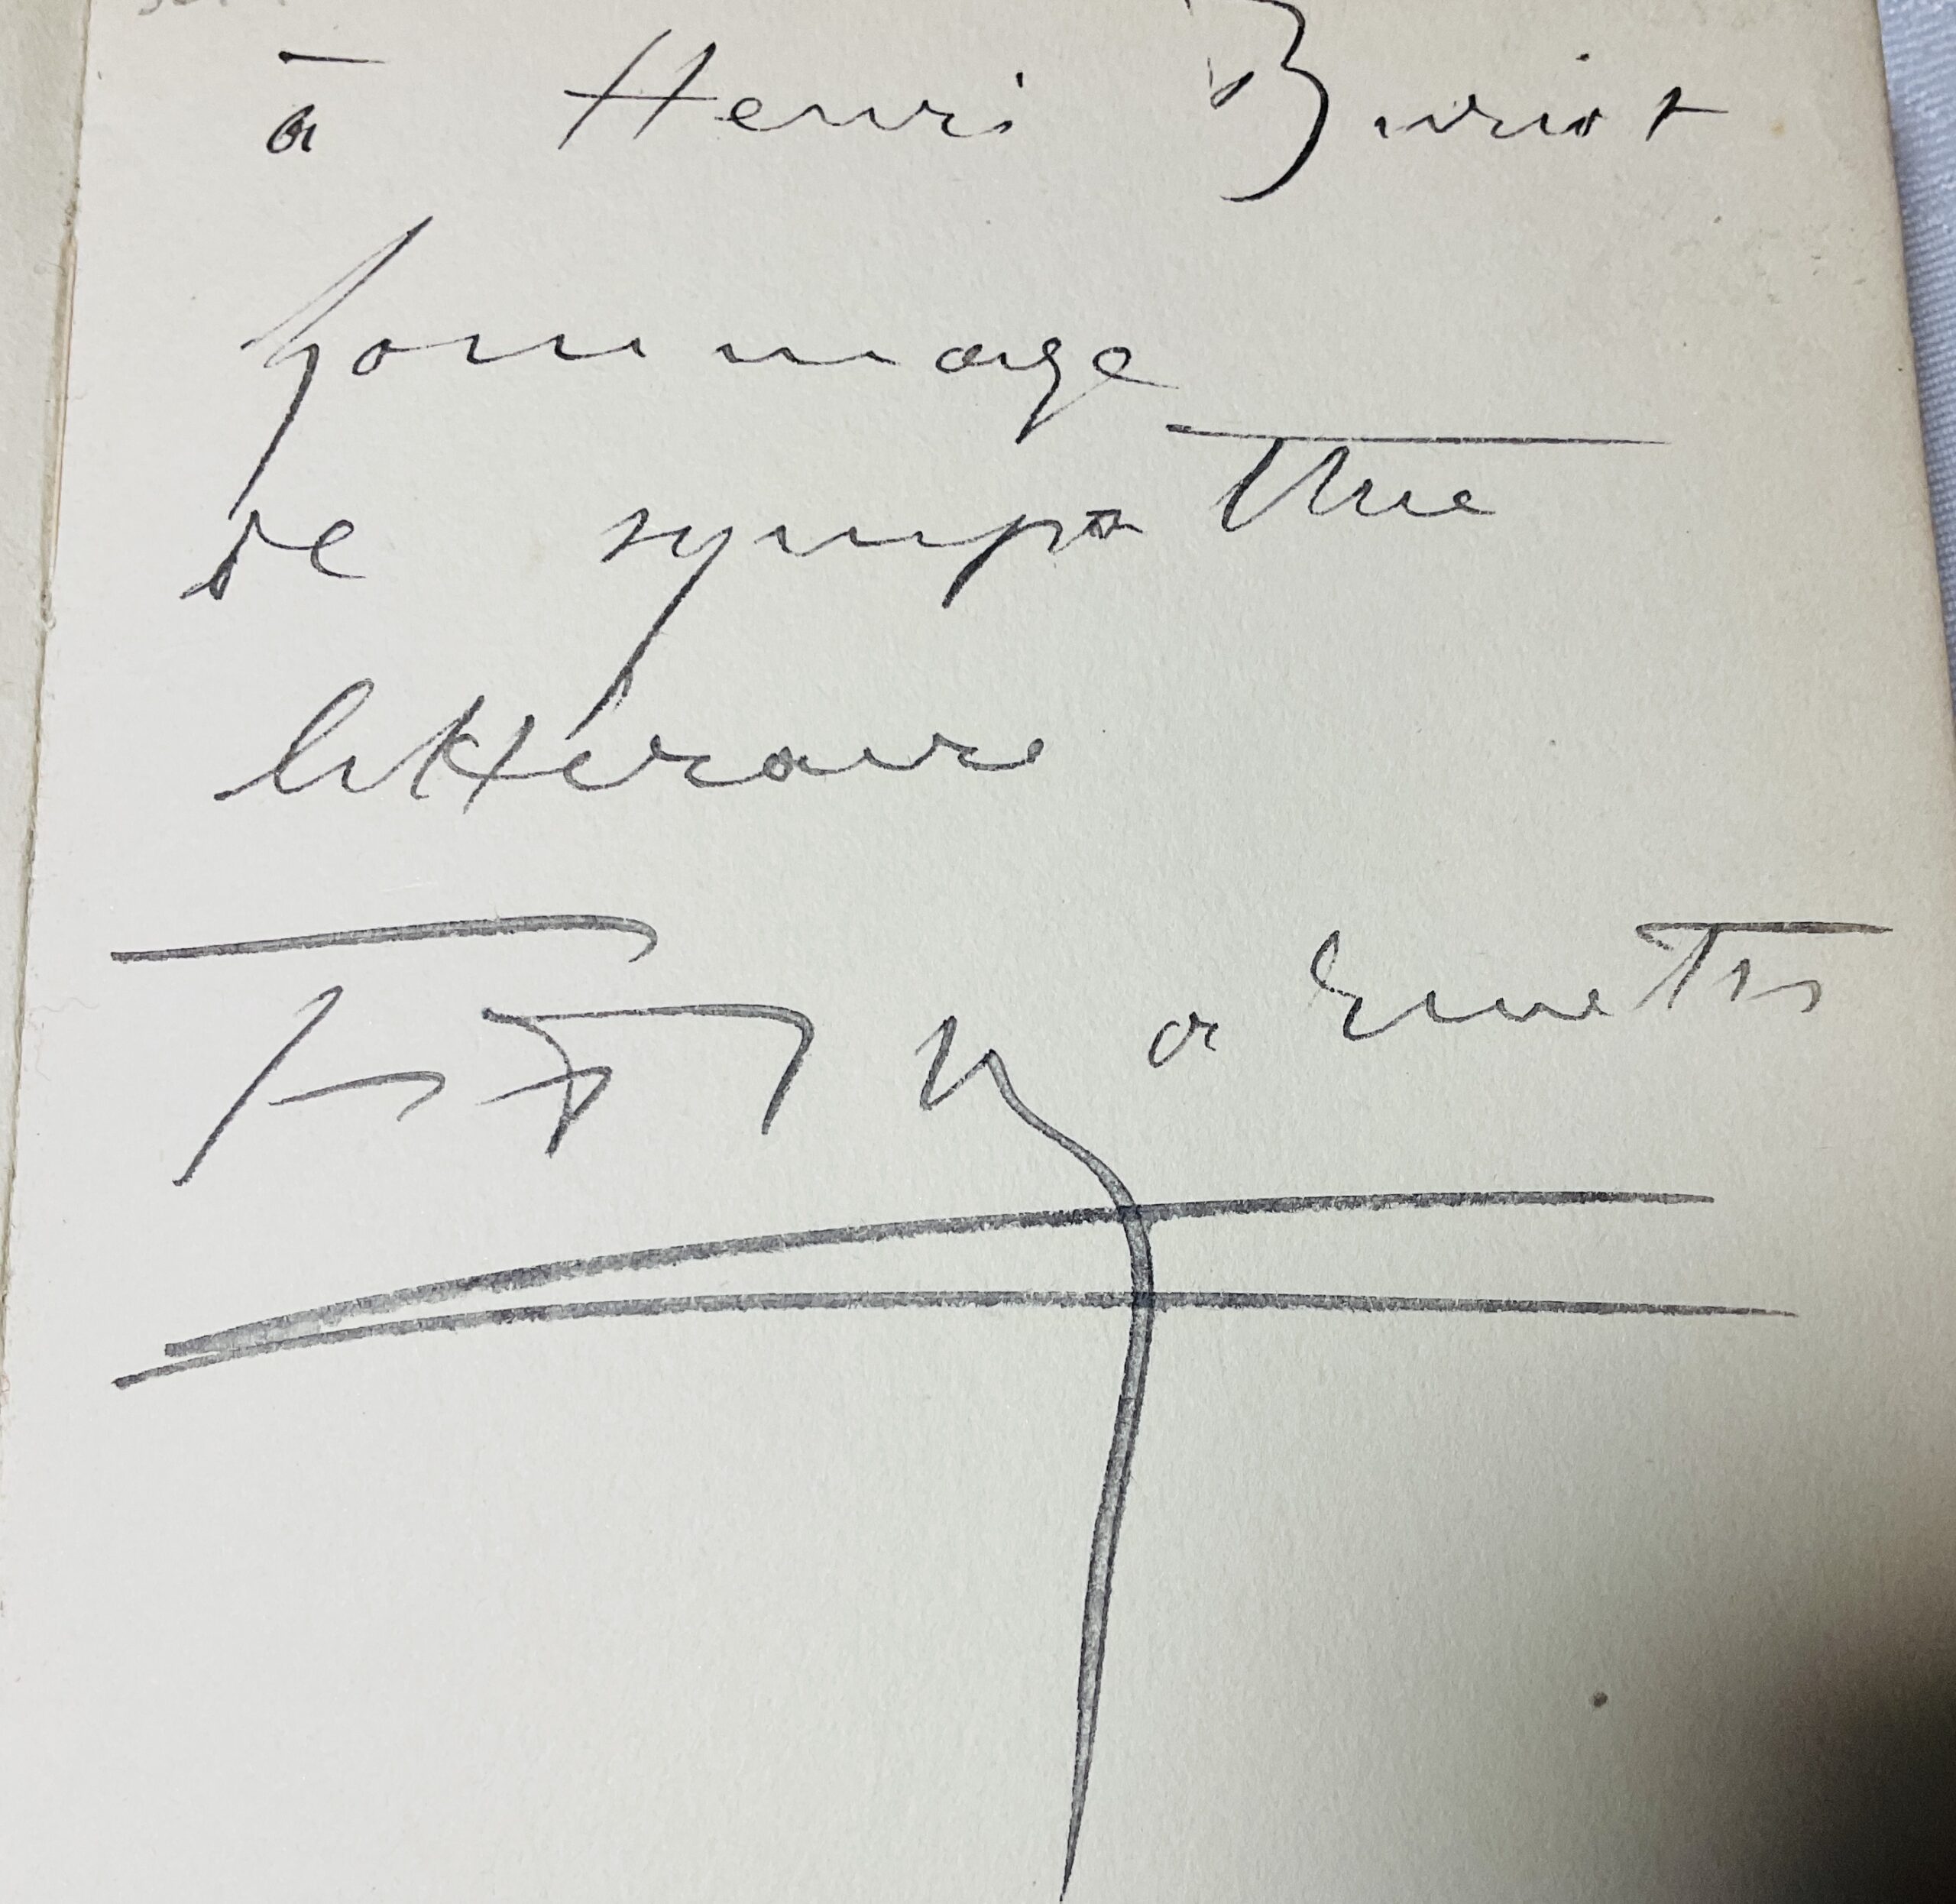 à Henri Buriot
hommage
de sympathie
littéraire
F. T. Marinetti